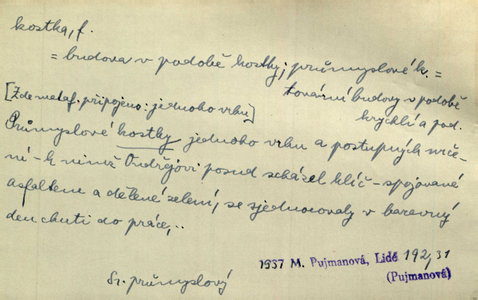 kostka, f.
= budova v podobě kostky; průmyslové k. =
tovární budovy v podobě
krychlí a pod.
[Zde metaf. připojeno: jednoho vrhu]
Průmyslové kostky jednoho vrhu a postupných
né - k nimž Ondřejovi posud scházel klíč - spojované
asfaltem a dělené zelení, se sjednocovaly v barevný
den chuti do práce,..
1937 M. Pujmanová, Lidé 192,31
(Pujmanová)
Sr. průmyslový